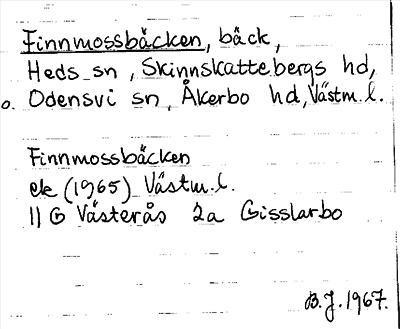 Finnmossbäcken, bäck,
Heds sn, Skinnskattebergs hd,
o. Odensvi sn, Åkerbo hd, Västm. l.
Finnmossbäcken
ek (1965) Västm. l.
11 G Västerås 2a Gisslarbo
B.J. 1967.